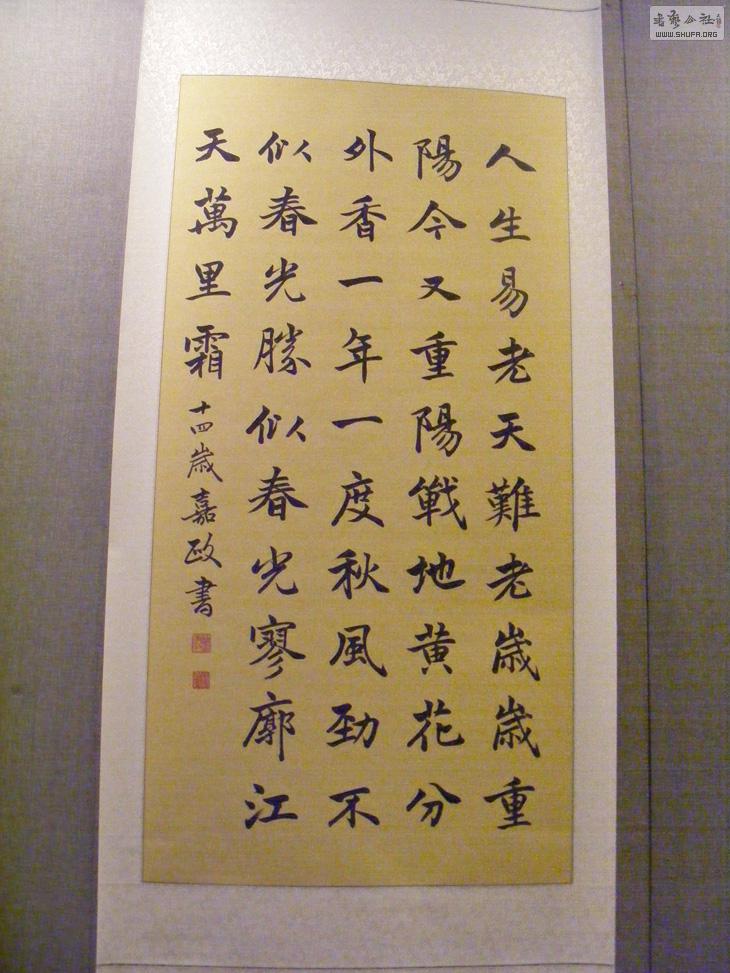 人生易老天難老歲歲重
陽今又重陽戰地黃花分
外香一年一度秋風勁不
似春光勝似春光寥廓江
天萬里霜
十四歲嘉政書
書藝公社
WWW.SHUFA.ORG